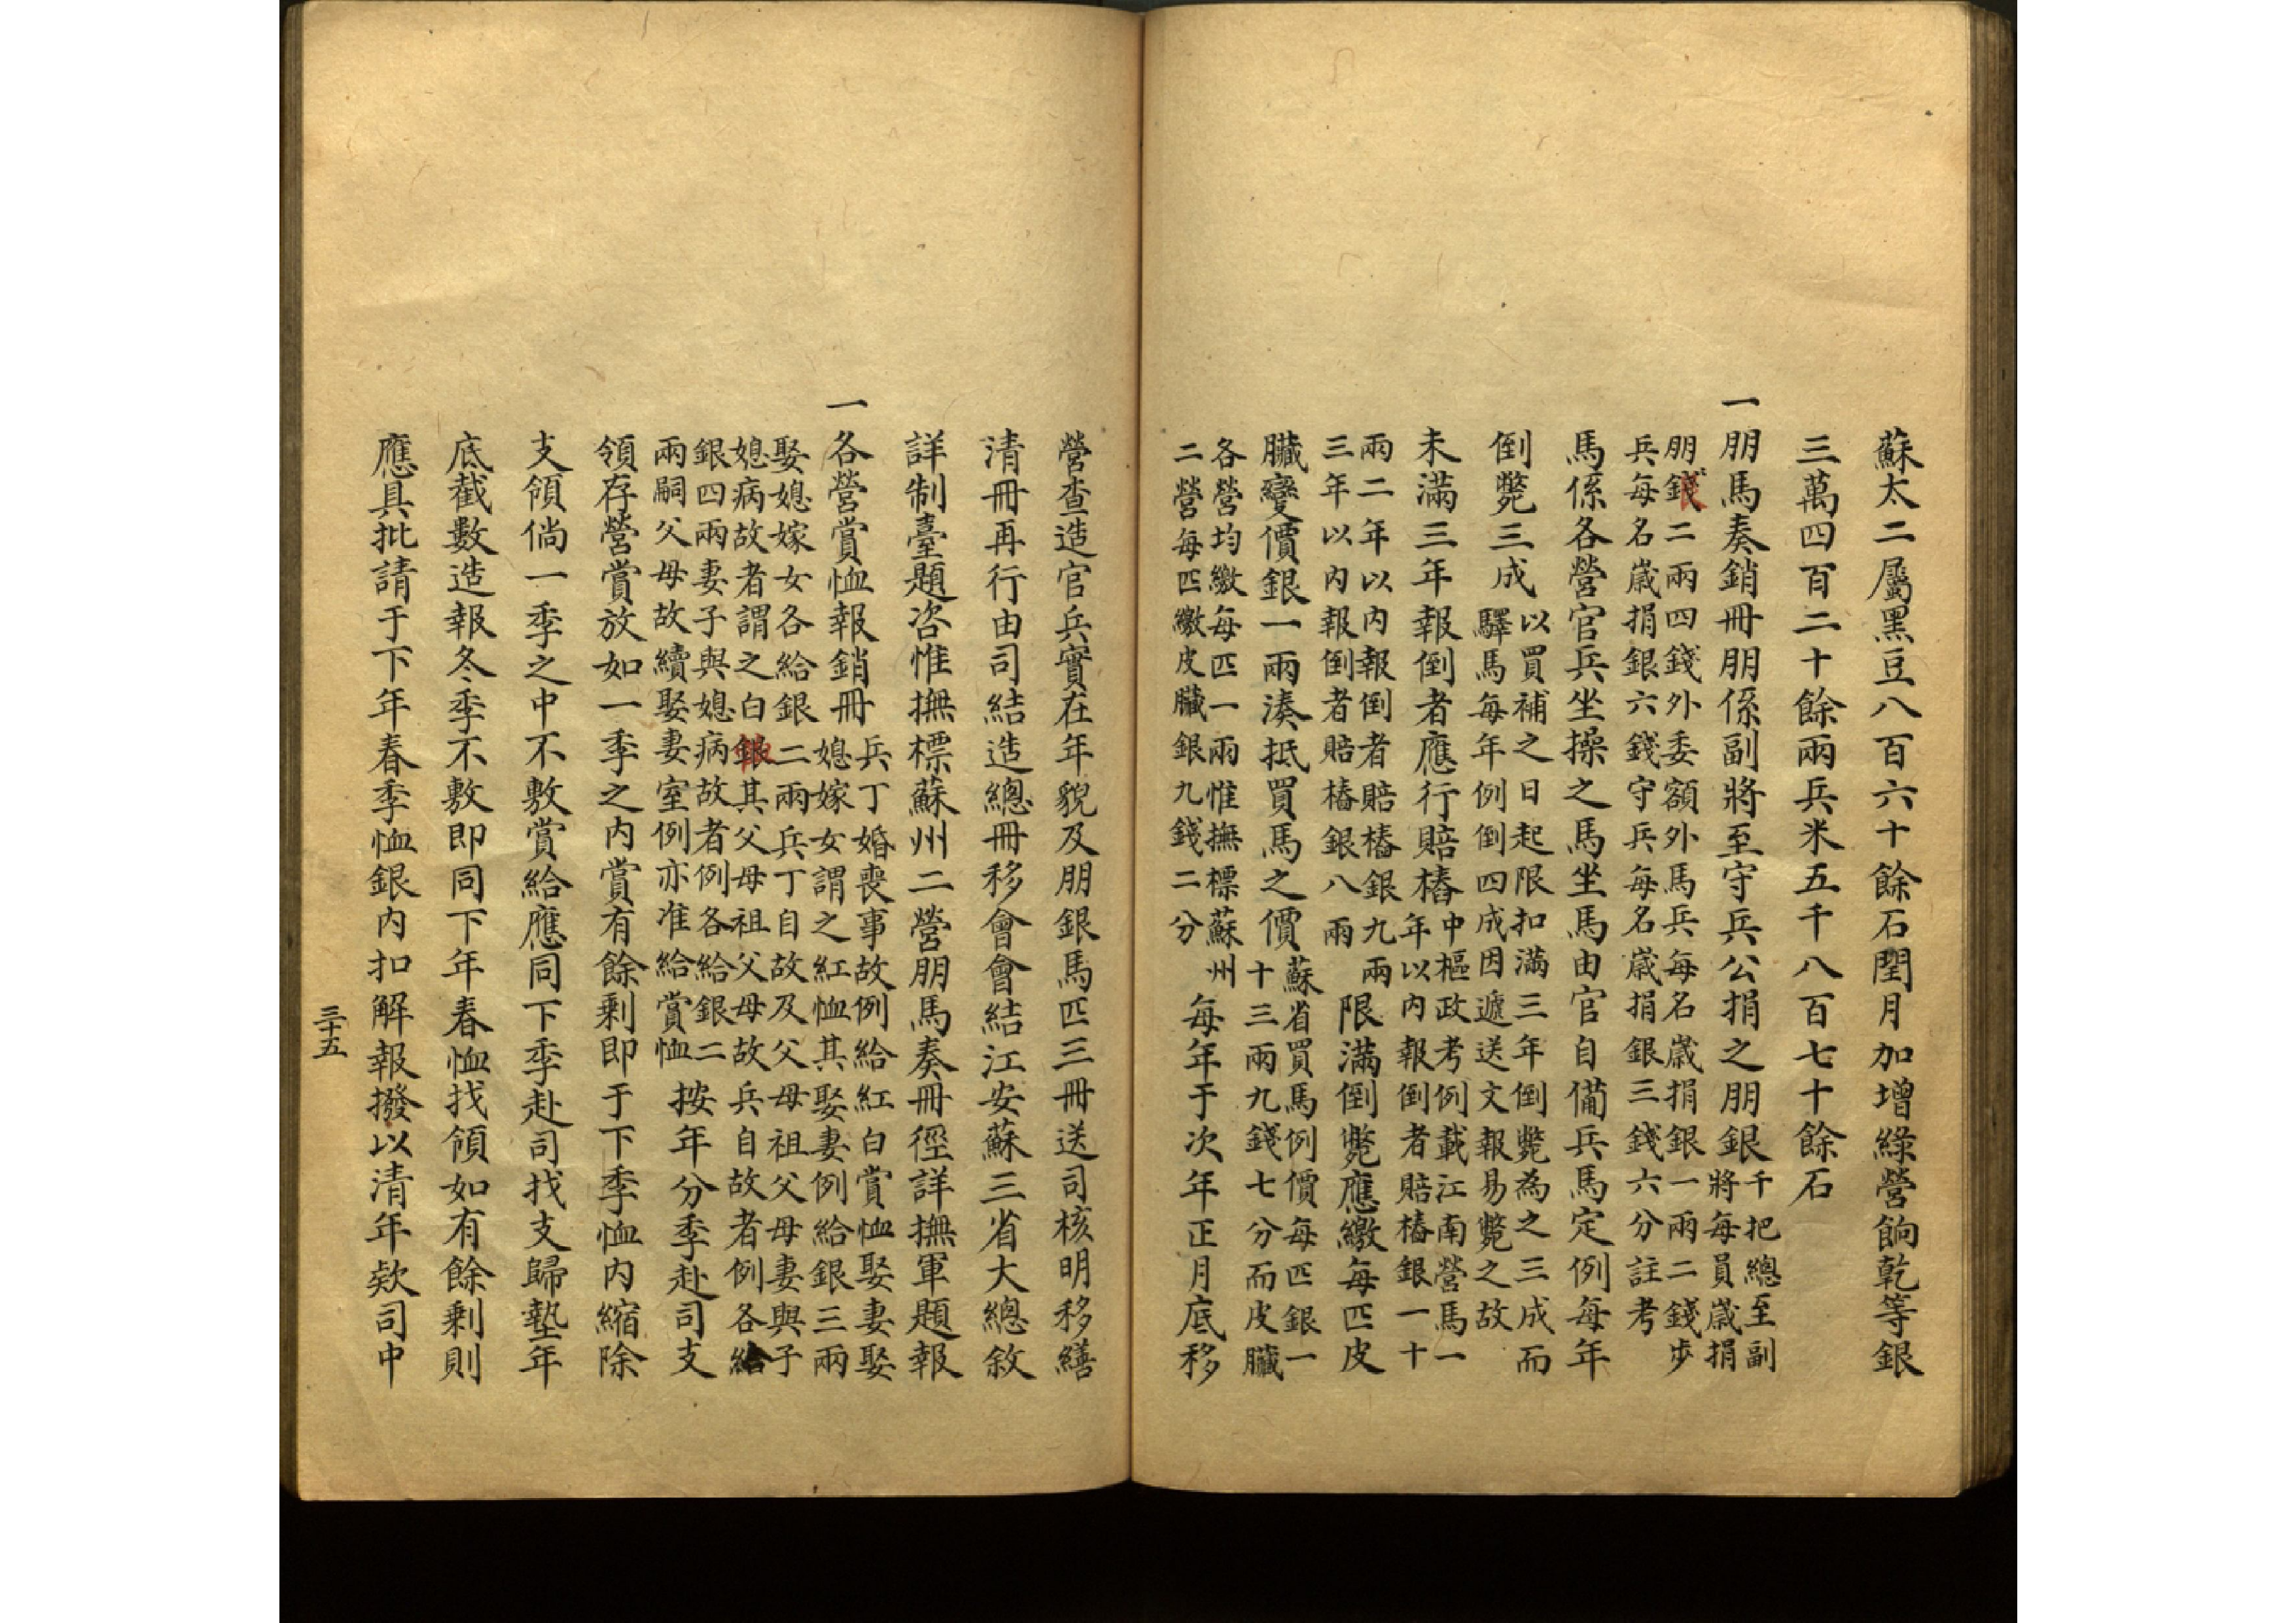 蘇太二屬黑豆八百六十餘石閏月加增綠營餉乾等銀
三萬四百二十餘兩兵米五千八百七十餘石
一朋馬奏銷冊朋係副將至守兵公捐之朋銀
千把總至副
將每員歲捐
朋銀二兩四錢外委額外馬兵每名歲捐銀一兩二錢步
兵每名歲捐銀六錢守兵每名歲捐銀三錢六分註考
馬係各營官兵坐操之馬坐馬由官自備兵馬定例每年
倒斃三成
以買補之日起限扣滿三年倒斃為之三成而
驛馬每年例倒四成因遞送文報易斃之故
未滿三年報倒者應行賠樁
中樞政考例載江南營馬一
年以內報倒者賠樁銀一十
兩二年以內報倒者賠樁銀九兩
三年以內報倒者賠樁銀八兩
限滿倒斃應繳每匹皮
臟變價銀一兩湊抵買馬之價
蘇省買馬例價每匹銀一
十三兩九錢七分而皮臟
各營均繳每匹一兩惟撫標蘇州
二營每匹繳皮臟銀九錢二分
每年于次年正月底移
營查造官兵實在年貌及朋銀馬匹三冊送司核明移繕
清冊再行由司結造總冊移會會結江安蘇三省大總敘
詳制臺題咨惟撫標蘇州二營朋馬奏冊徑詳撫軍題報
一各營賞恤報銷冊
兵丁婚喪事故例給紅白賞恤娶妻娶
媳嫁女謂之紅恤其娶妻例給銀三兩
娶媳嫁女各給銀二兩兵丁自故及父母祖父母妻與子
媳病故者謂之白恤其父母祖父母故兵自故者例各給
銀四兩妻子與媳病故者例各給銀二
兩嗣父母故續娶妻室例亦准給賞恤
按年分季赴司支
領存營賞放如一季之內賞有餘剩即于下季恤內縮除
支領倘一季之中不敷賞給應同下季赴司找支歸墊年
底截數造報冬季不敷即同下年春恤找領如有餘剩則
應具批請于下年春季恤銀內扣解報撥以清年款司中
三十五